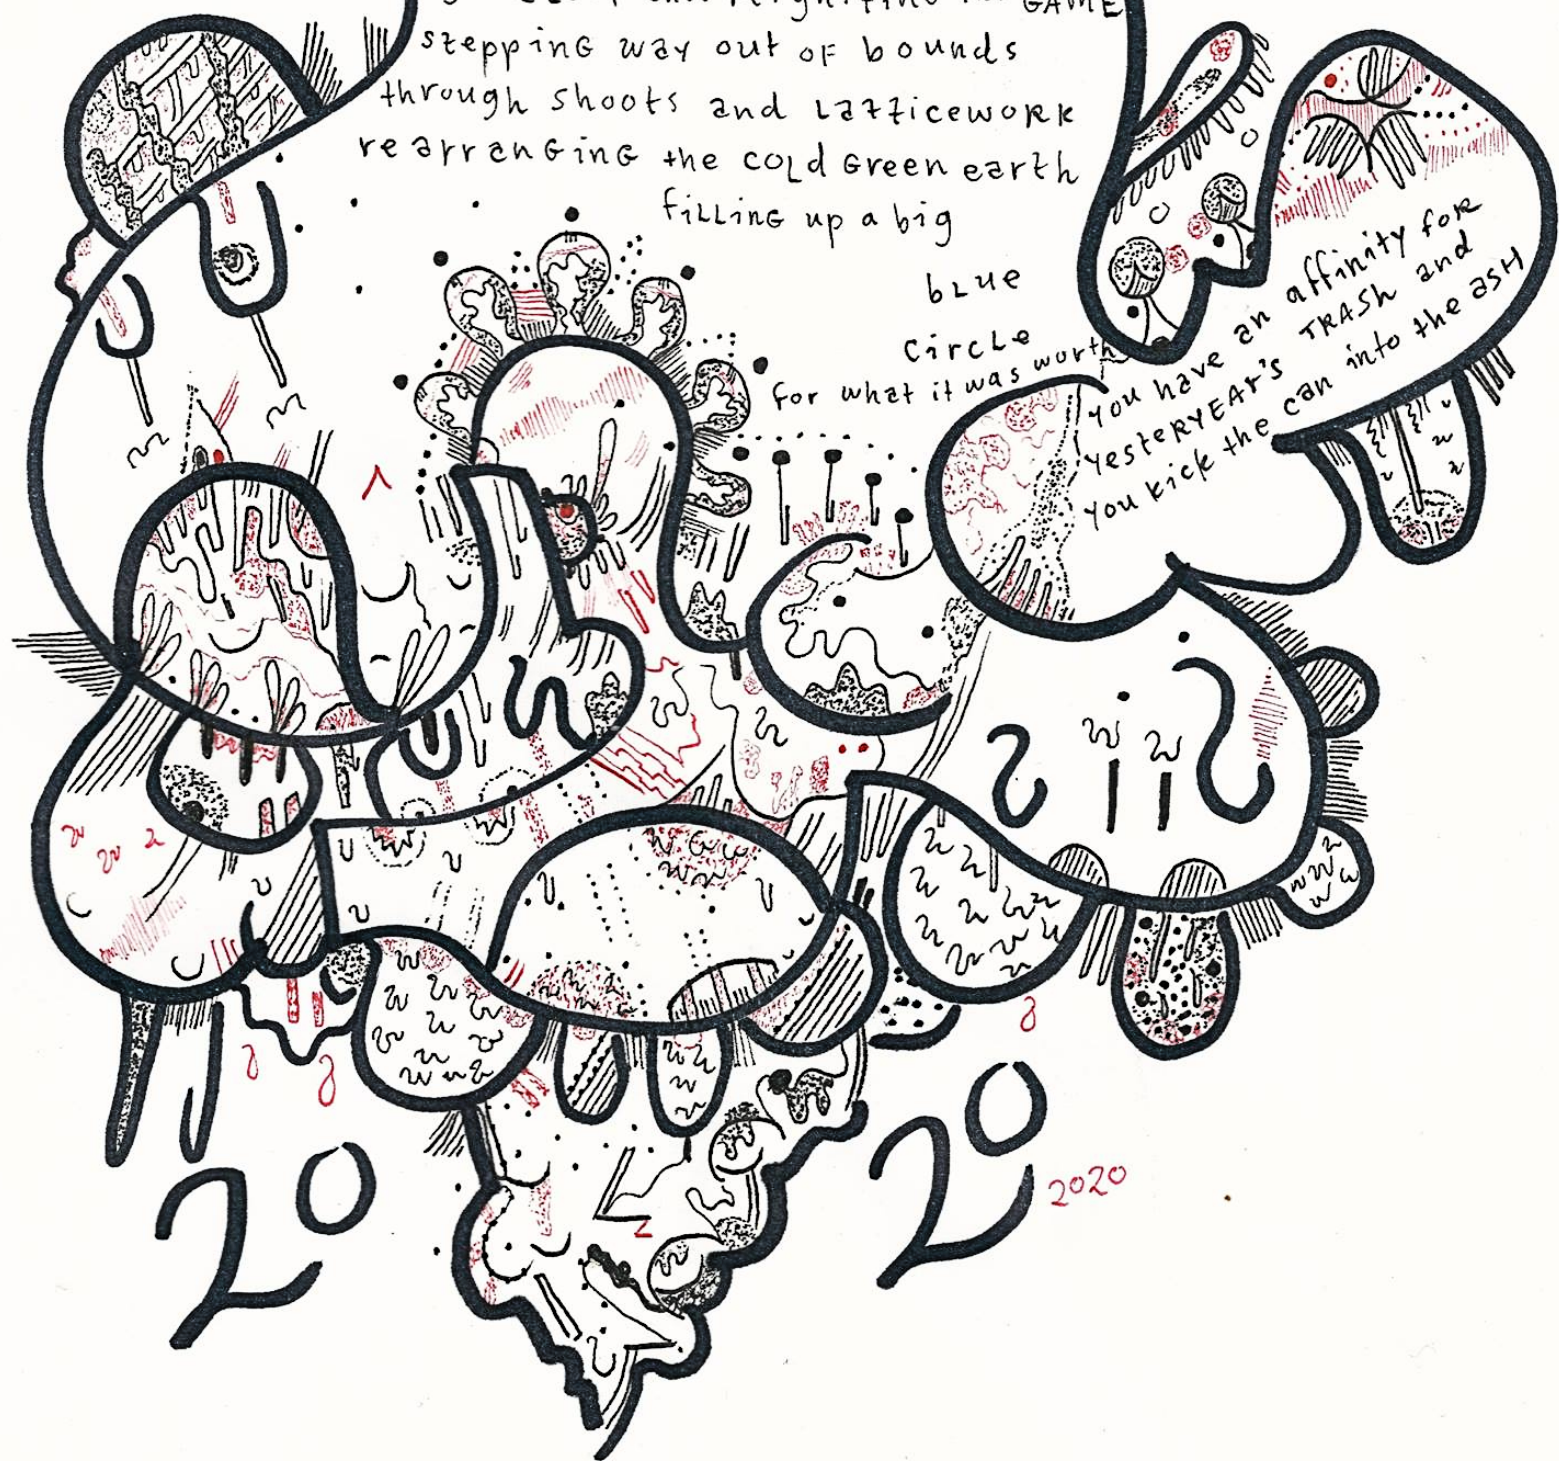 GAME
stepping way out of bounds
through shoots and Latticework
rearranging the cold Green earth
filling up a big
blue
circle
for what it was worth
you have an affinity for
yesterYEAr's TRASH and
you kick the can into the ash
20
20
2020